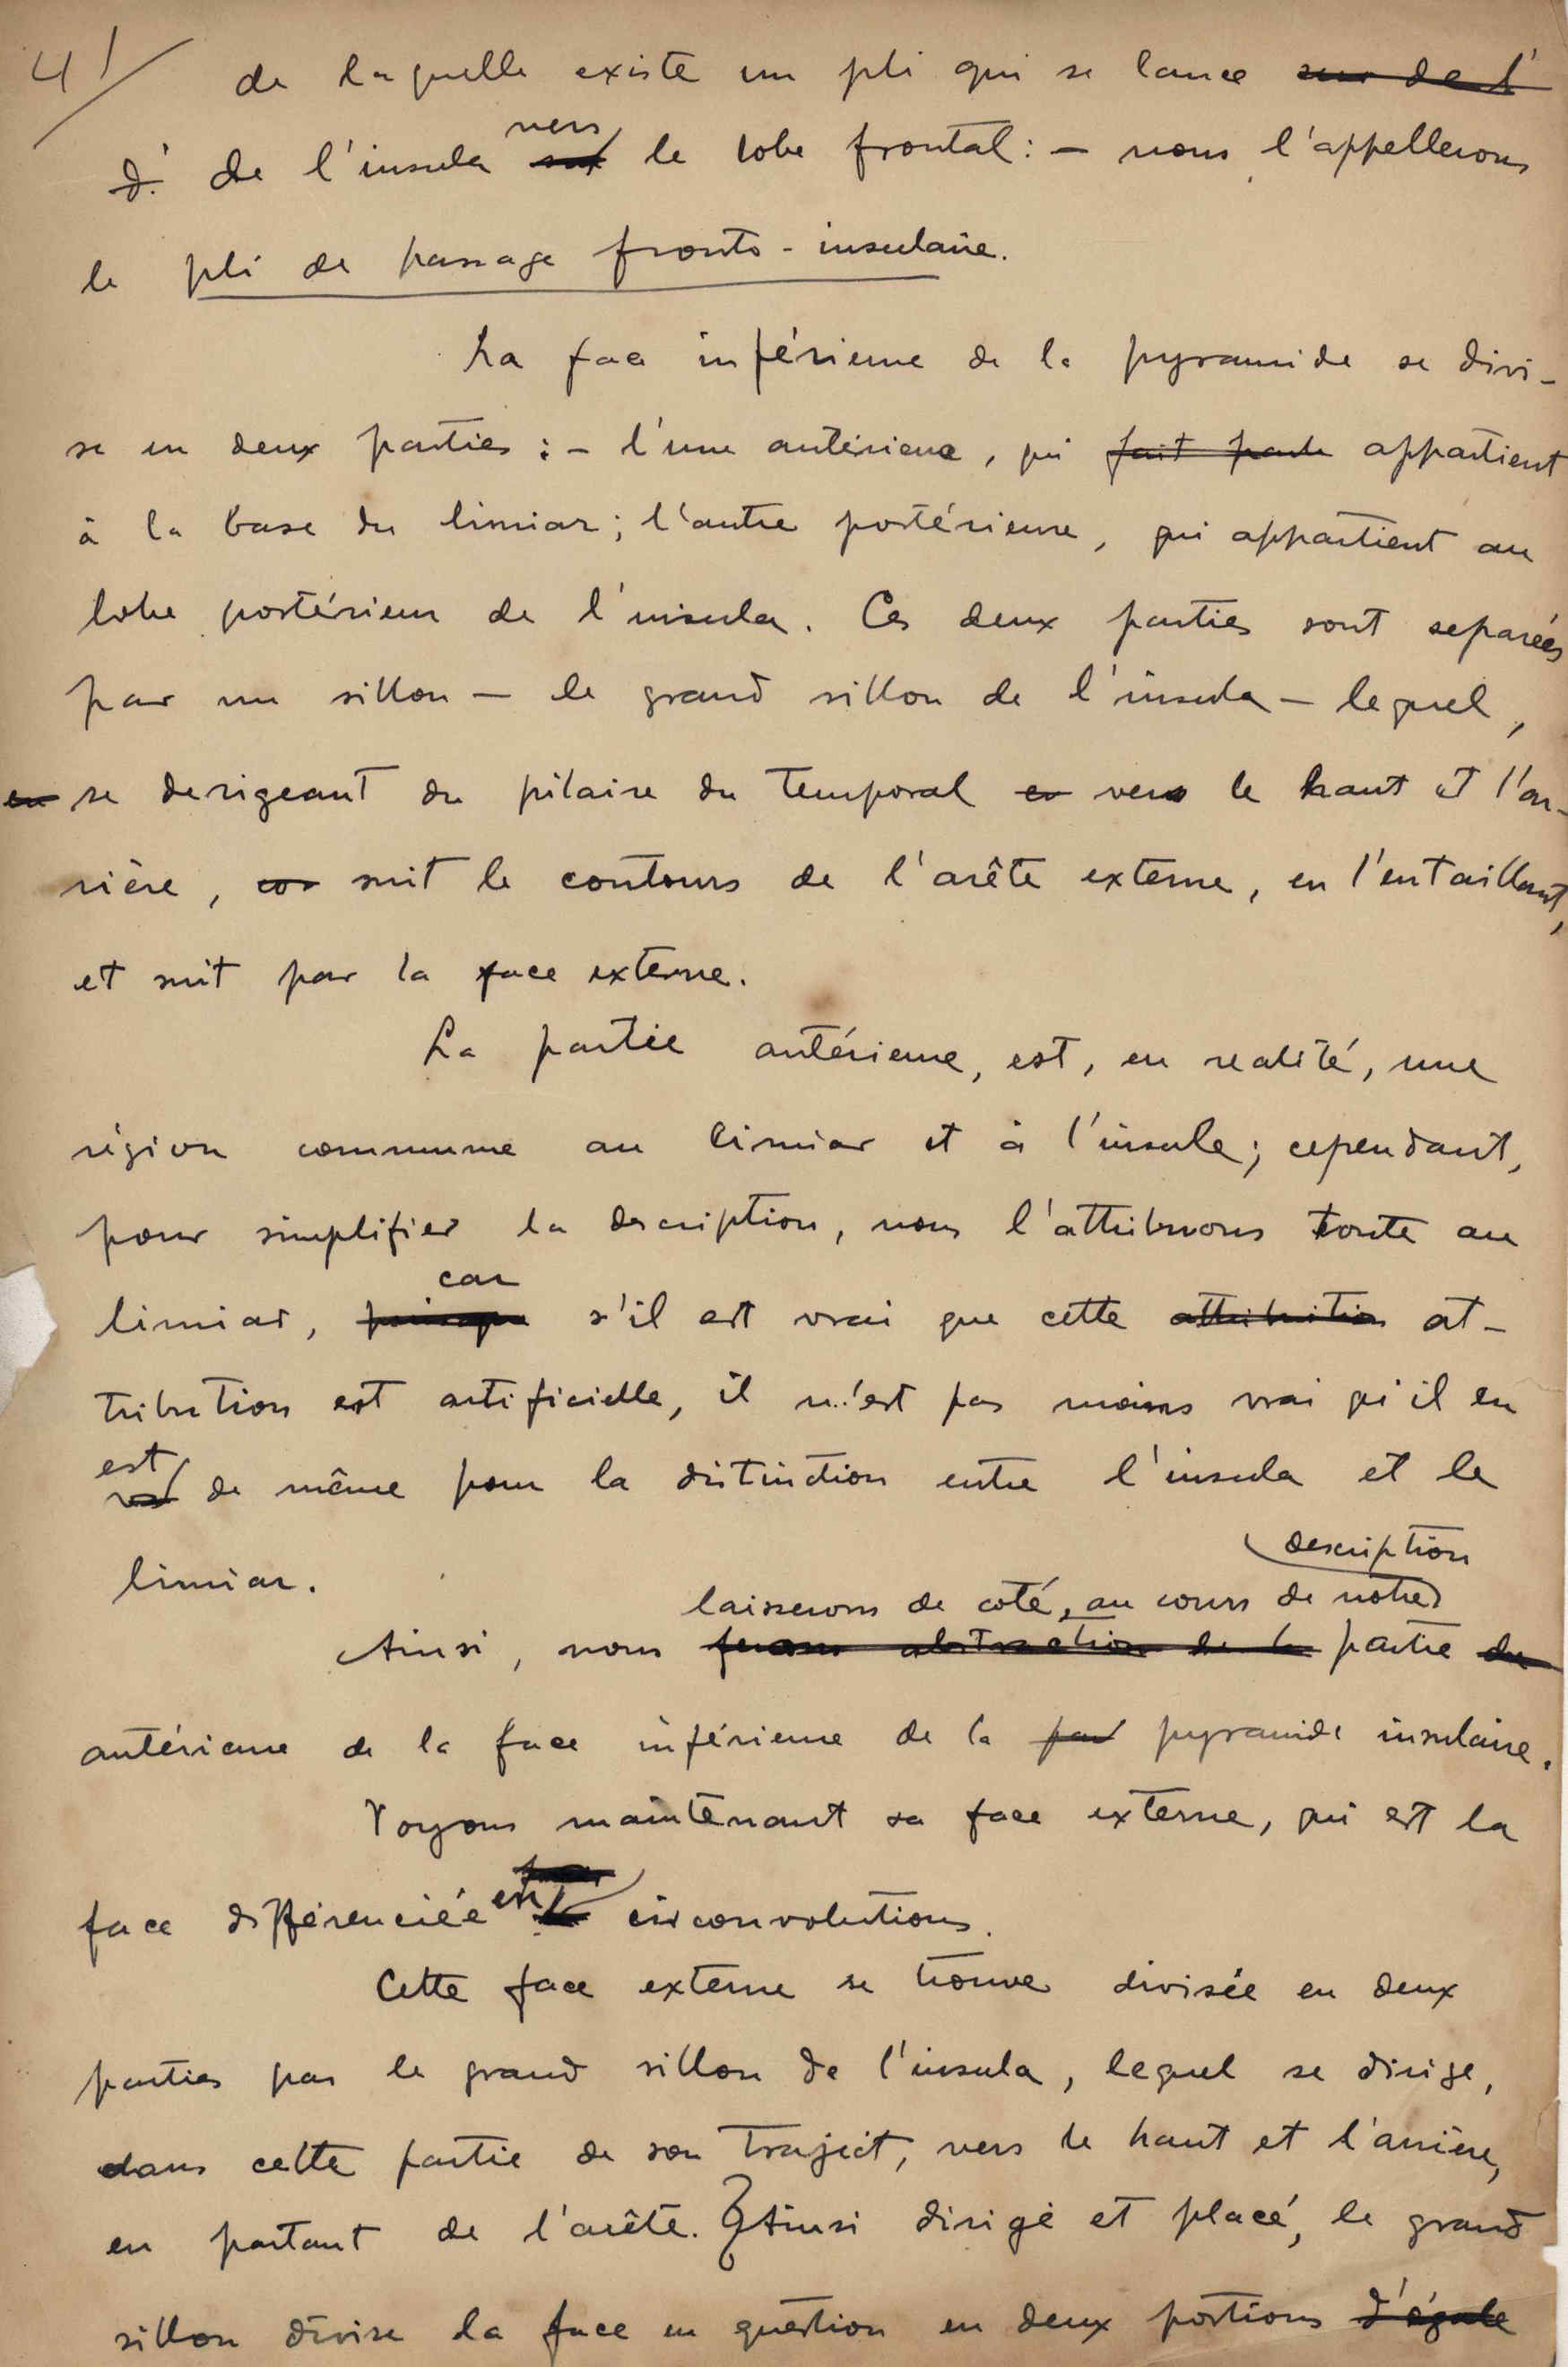 41/ de laquelle existe un pli qui se lance sur de l'
d. de l'insula vers le lobe frontal : — nous l'appellerons
le pli de passage fronto-insulaire.
La face inférieure de la pyramide se divi-
se en deux parties : — l'une antérieure, qui fait partie appartient
à la base du limiar ; l'autre postérieure, qui appartient au
lobe postérieur de l'insula. Ces deux parties sont separées
par un sillon — le grand sillon de l'insula — lequel,
en se derigeant du pilaire du temporal en vers le haut et l'ar-
rière, suit le contours de l'arête externe, en l'entaillant,
et suit par la face externe.
La partie antérieure, est, en realité, une
région commune au limiar et à l'insule ; cependant,
pour simplifier la description, nous l'attribuons toute au
car
limiar, puisque s'il est vrai que cette attribution at-
tribution est artificielle, il n'est pas moins vrai qu'il en
est de même pour la distinction entre l'insula et le
description
limiar.
laisserons de coté, au cours de notre
Ainsi, nous ferons abstraction de la partie du
antérieure de la face inférieure de la pyramide insulaire.
Voyons maintenant sa face externe, qui est la
face différenciée en circonvolutions.
Cette face externe se trouve divisée en deux
parties par le grand sillon de l'insula, lequel se dirige,
dans cette partie de son traject, vers le haut et l'arrière,
en partant de l'arête. Ainsi dirigé et placé, le grand
sillon divise la face en question en deux portions d'égale